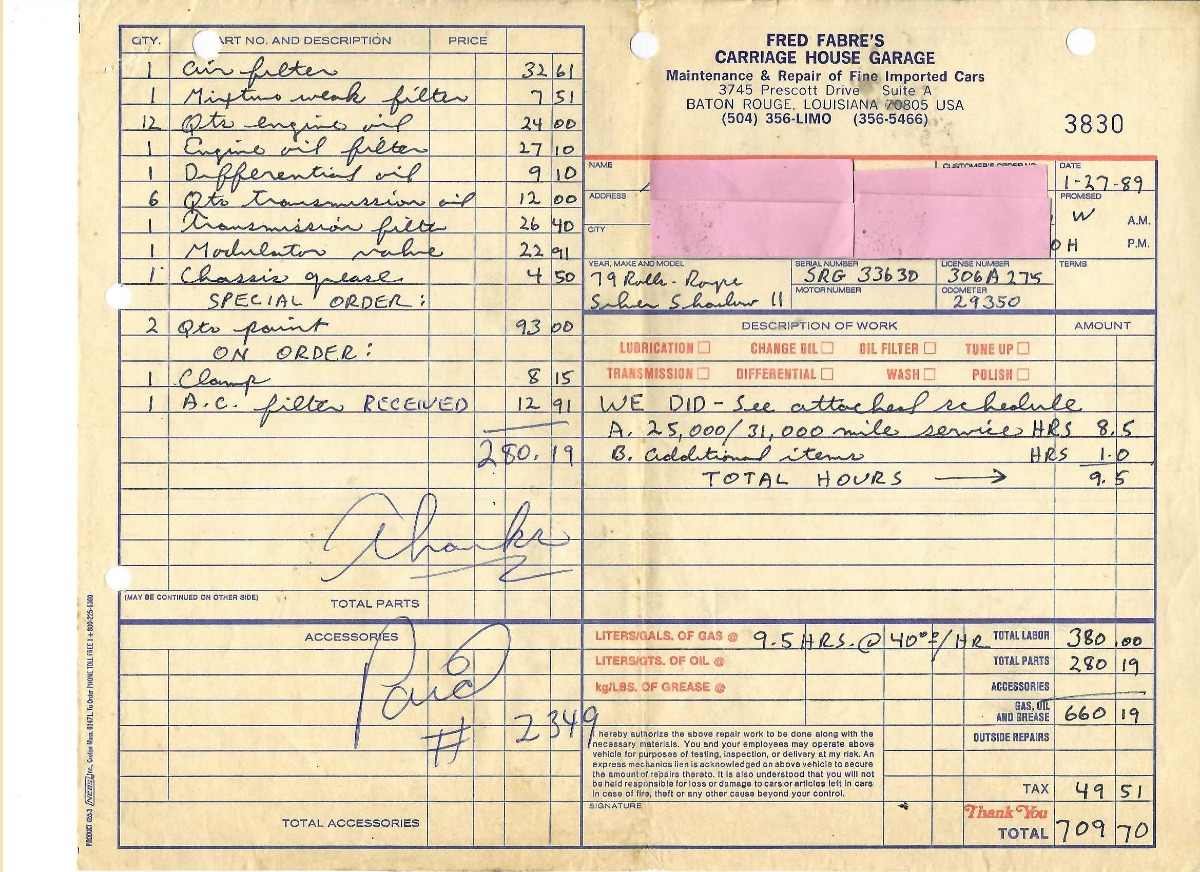 QTY. PART NO. AND DESCRIPTION PRICE
1 Air filter 32 61
1 Mixture weak filter 7 51
12 Qts engine oil 24 00
1 Engine oil filter 27 10
1 Differential oil 9 10
6 Qts transmission oil 12 00
1 Transmission filter 26 40
1 Modulator valve 22 91
1 Chassis grease 4 50
SPECIAL ORDER:
2 Qts paint 93 00
ON ORDER:
1 Clamp 8 15
1 A.C. filter RECEIVED 12 91
280.19
Thanks
(MAY BE CONTINUED ON OTHER SIDE)
TOTAL PARTS
ACCESSORIES
Paid
# 2349
TOTAL ACCESSORIES
FRED FABRE'S
CARRIAGE HOUSE GARAGE
Maintenance & Repair of Fine Imported Cars
3745 Prescott Drive Suite A
BATON ROUGE, LOUISIANA 70805 USA
(504) 356-LIMO (356-5466)
3830
NAME CUSTOMER'S ORDER NO. DATE
1-27-89
ADDRESS PROMISED
W A.M.
CITY
OH P.M.
YEAR, MAKE AND MODEL SERIAL NUMBER LICENSE NUMBER TERMS
79 Rolls-Royce SRG 33630 306A275
MOTOR NUMBER ODOMETER
Silver Shadow II 29350
DESCRIPTION OF WORK AMOUNT
LUBRICATION CHANGE OIL OIL FILTER TUNE UP
TRANSMISSION DIFFERENTIAL WASH POLISH
WE DID - See attached schedule
A. 25,000/31,000 mile service HRS 8.5
B. Additional items HRS 1.0
TOTAL HOURS → 9.5
LITERS/GALS. OF GAS @ 9.5 HRS. @ 40.00/HR TOTAL LABOR 380.00
LITERS/QTS. OF OIL @ TOTAL PARTS 280 19
kg/LBS. OF GREASE @ ACCESSORIES
GAS, OIL
AND GREASE 660 19
OUTSIDE REPAIRS
I hereby authorize the above repair work to be done along with the
necessary materials. You and your employees may operate above
vehicle for purposes of testing, inspection, or delivery at my risk. An
express mechanics lien is acknowledged on above vehicle to secure
the amount of repairs thereto. It is also understood that you will not
be held responsible for loss or damage to cars or articles left in cars
in case of fire, theft or any other cause beyond your control.
TAX 49 51
SIGNATURE
Thank You
TOTAL 709 70